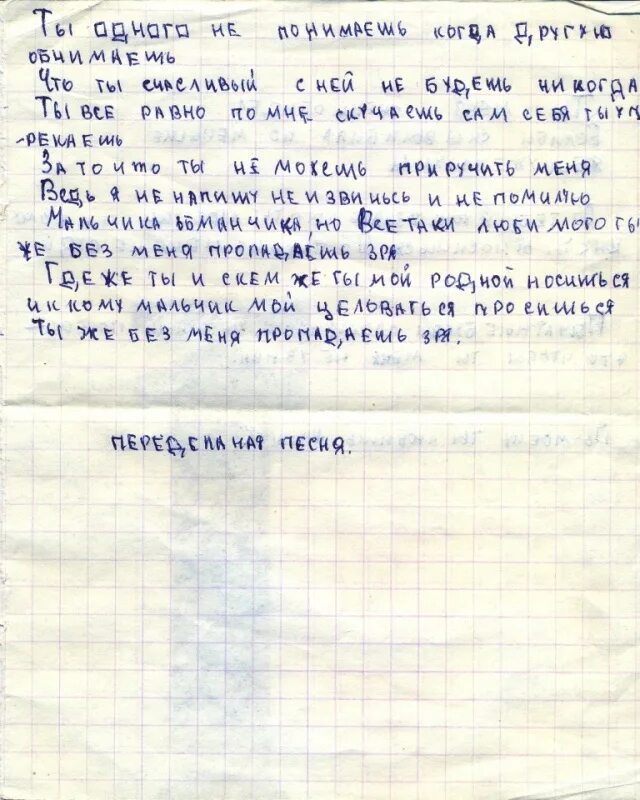 Ты одного не понимаешь когда другую
обнимаешь
Что ты счасливый с ней не будешь никогда
Ты все равно по мне скучаешь сам себя ты уп
-рекаешь
За то что ты не можешь приручить меня
Ведь я не напишу не извинюсь и не помилую
Мальчика обманчика, но Все таки люби мого ты
же без меня пропадаешь зря
Где же ты и скем же ты мой родной носишься
и к кому мальчик мой целоваться просишься
Ты же без меня пропадаешь зря.
Переделаная песня.